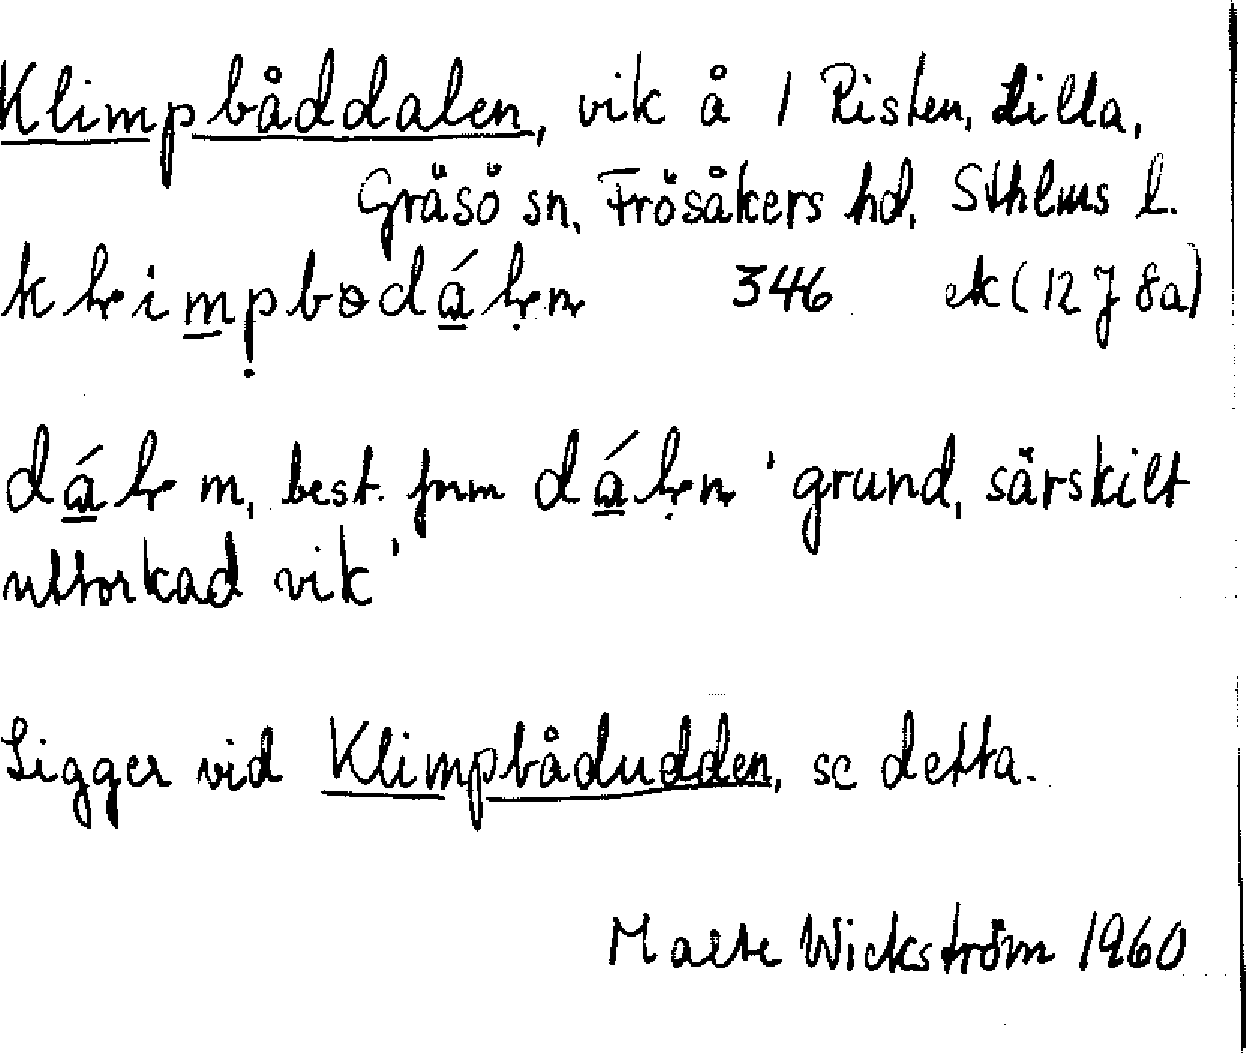 Klimpbåddalen, vik å 1 Risten, Lilla,
Gräsö sn, Frösåkers hd, Sthlms l.
346 ek (12 J 8a)
m, best. form 'grund, särskilt
uttorkad vik'
Ligger vid Klimpbådudden, se detta.
Malte Wickström 1960